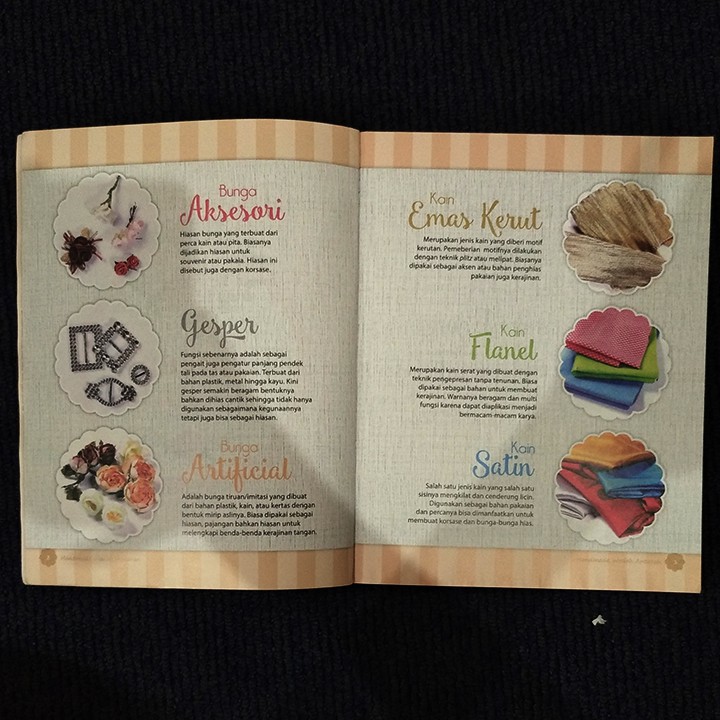 Bunga
Aksesori
Hiasan bunga yang terbuat dari
perca kain atau pita. Biasanya
dijadikan hiasan untuk
souvenir atau pakaia. Hiasan ini
disebut juga dengan korsase.
Gesper
Fungsi sebenarnya adalah sebagai
pengait juga pengatur panjang pendek
tali pada tas atau pakaian. Terbuat dari
bahan plastik, metal hingga kayu. Kini
gesper semakin beragam bentuknya
bahkan dihias cantik sehingga tidak hanya
digunakan sebagaimana kegunaannya
tetapi juga bisa sebagai hiasan.
Bunga
Artificial
Adalah bunga tiruan/imitasi yang dibuat
dari bahan plastik, kain, atau kertas dengan
bentuk mirip aslinya. Biasa dipakai sebagai
hiasan, pajangan bahkan hiasan untuk
melengkapi benda-benda kerajinan tangan.
Kain
Emas Kerut
Merupakan jenis kain yang diberi motif
kerutan. Pemeberian motifnya dilakukan
dengan teknik plitz atau melipat. Biasanya
dipakai sebagai aksen atau bahan penghias
pakaian juga kerajinan.
Kain
Flanel
Merupakan kain serat yang dibuat dengan
teknik pengepresan tanpa tenunan. Biasa
dipakai sebagai bahan untuk membuat
kerajinan. Warnanya beragam dan multi
fungsi karena dapat diaplikasi menjadi
bermacam-macam karya.
Kain
Satin
Salah satu jenis kain yang salah satu
sisinya mengkilat dan cenderung licin.
Digunakan sebagai bahan pakaian
dan percanya bisa dimanfaatkan untuk
membuat korsase dan bunga-bunga hias.